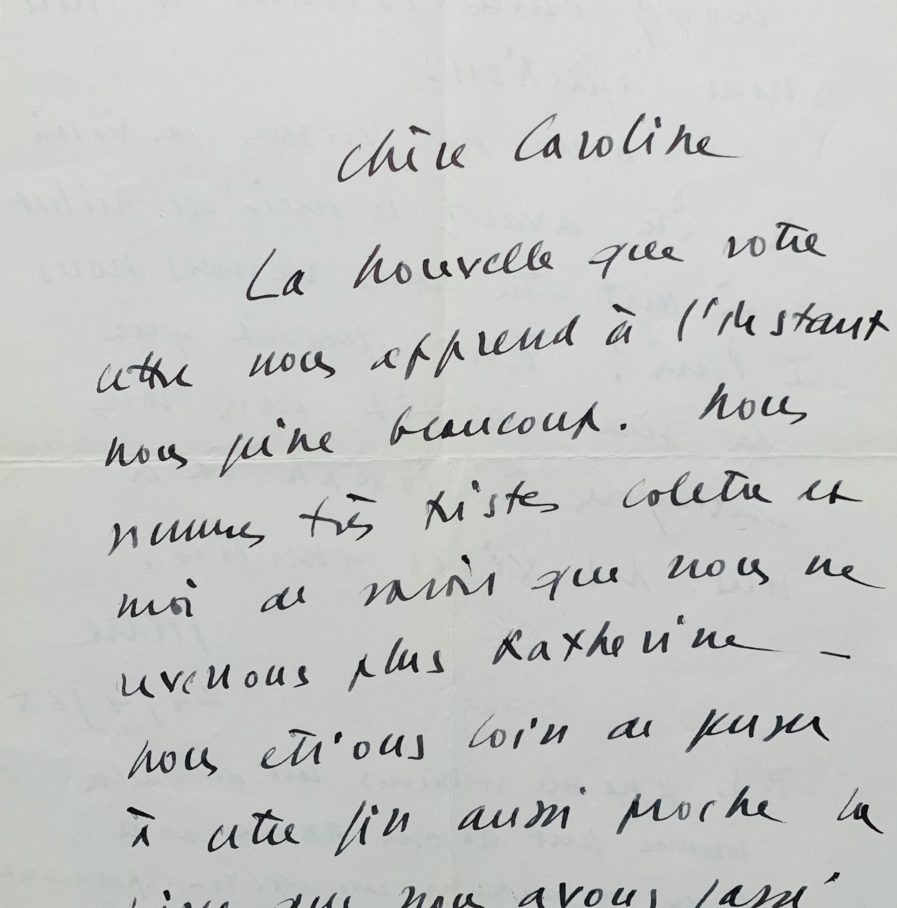 Chère Caroline
La nouvelle que votre
lettre nous apprend à l'instant
nous peine beaucoup. Nous
sommes très tristes Colette et
moi de savoir que nous ne
reverrons plus Katherine –
nous étions loin de penser
à cette fin aussi proche la
que nous avons passé